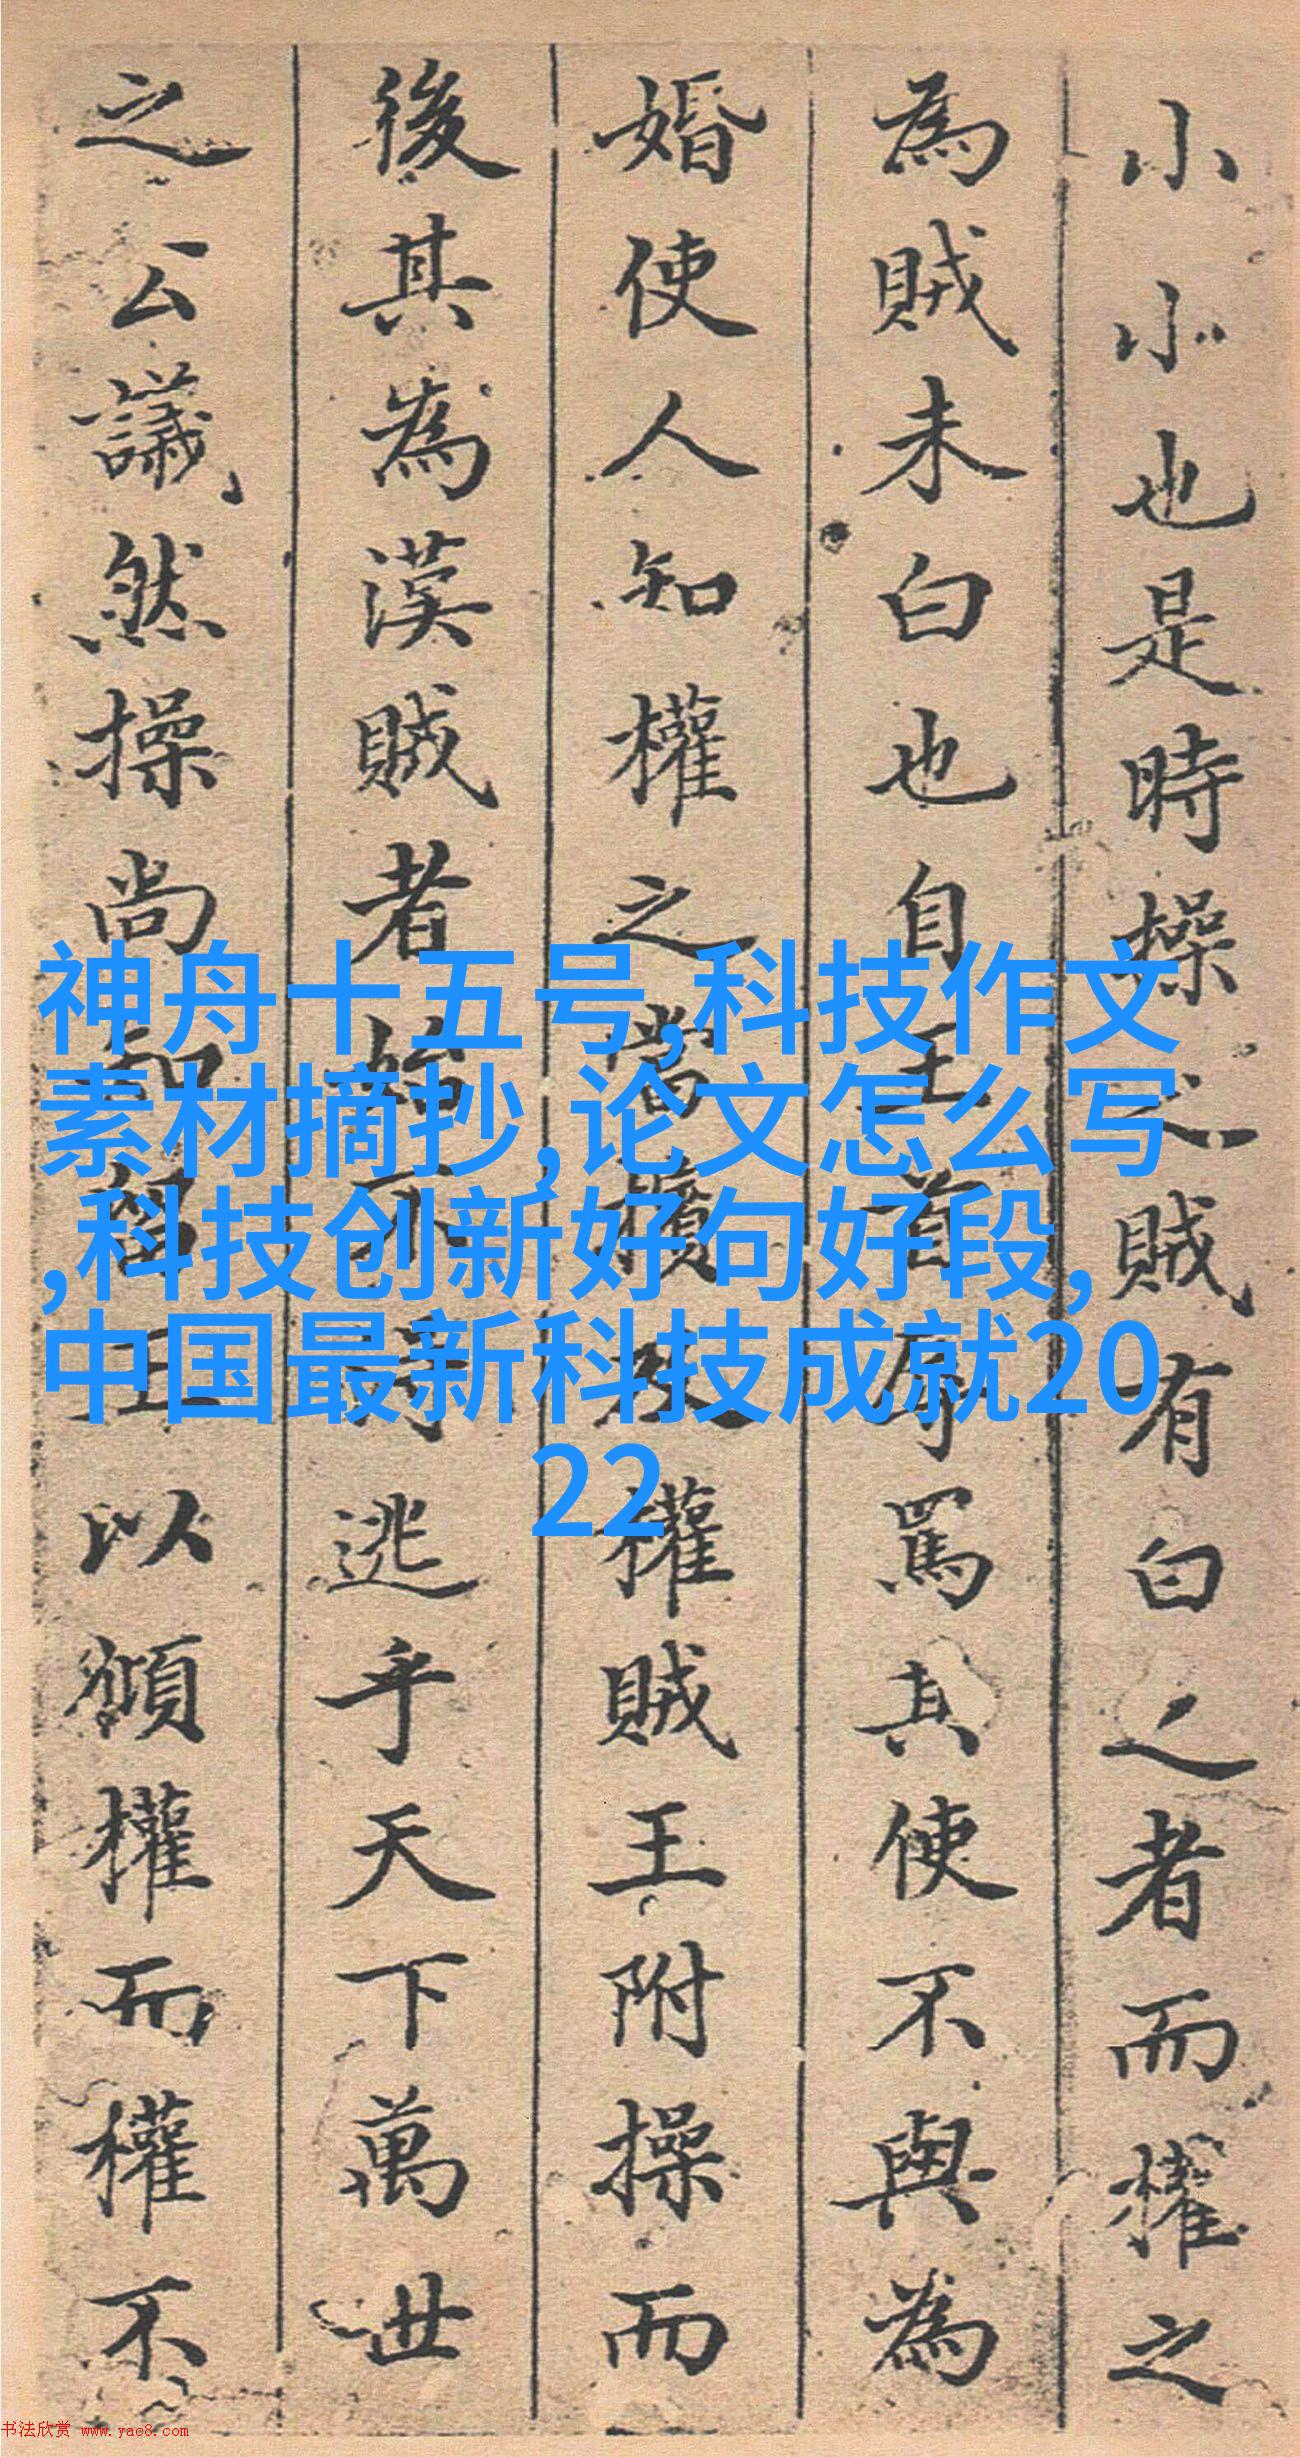 小小也是時操之賊有白之者而權之
為賊未白也自首辱罵其使不與為
婚使人知權之當權賊王附操而
後其為漢賊者始不逃乎天下萬世
之公議然操尚以權而權不
神舟十五号,科技作文
素材摘抄,论文怎么写
,科技创新好句好段,
中国最新科技成就20
22
书法欣赏 www.yac8.com